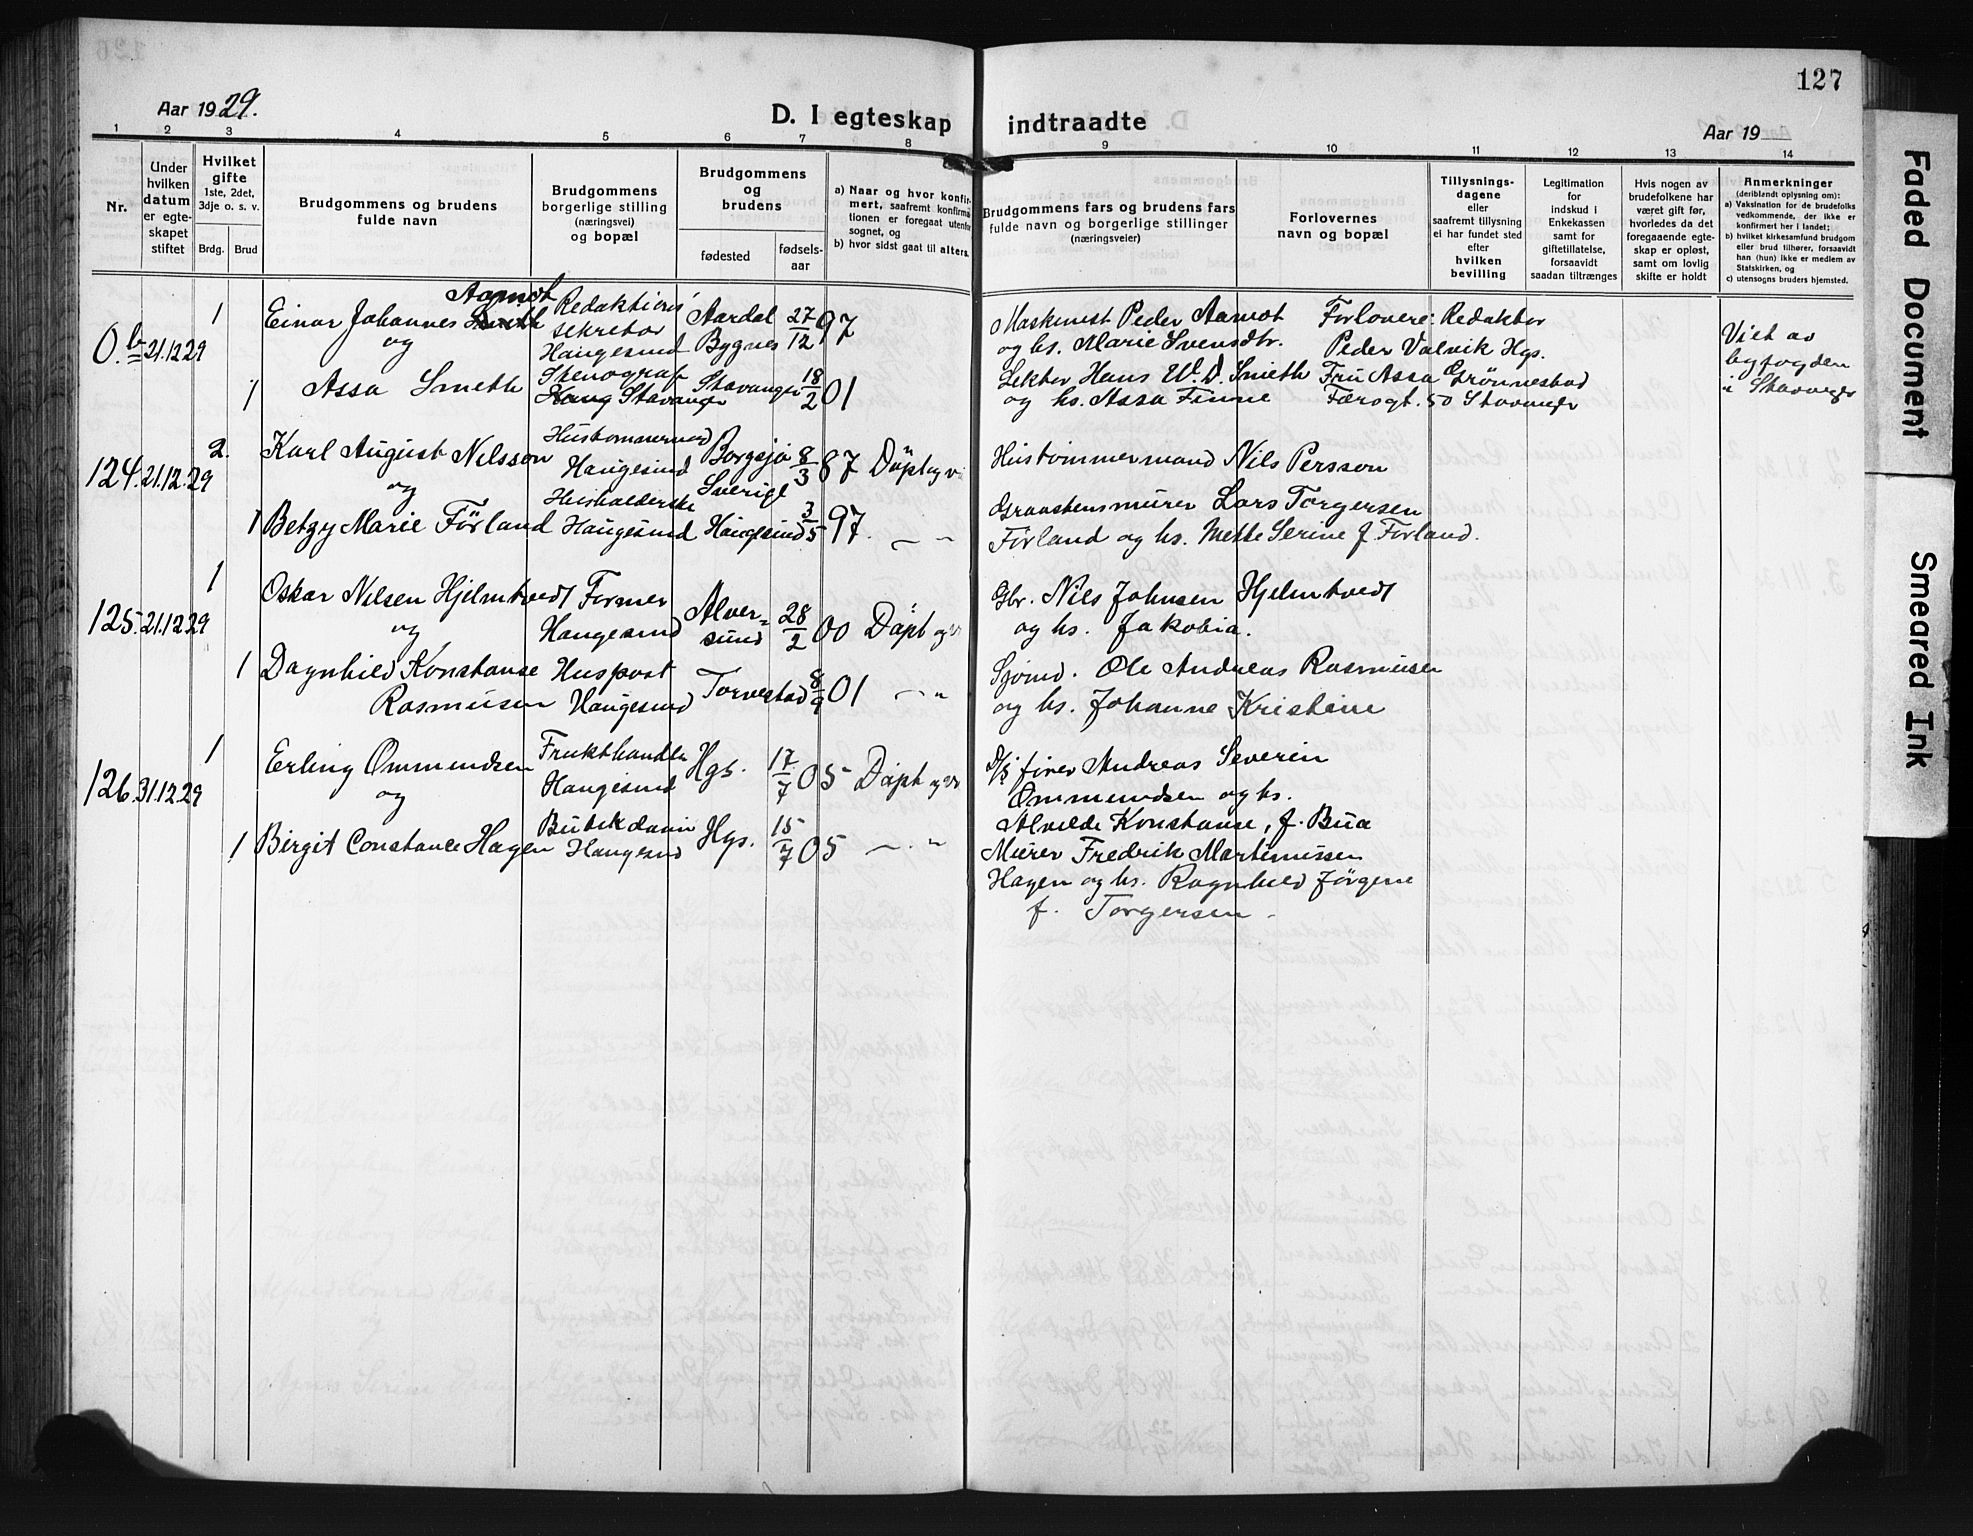 127
Aar 1929.
D. I egteskap indtraadte
Aar 19
1 2 3 4 5 6 7 8 9 10 11 12 13 14
Nr.
Under hvilken datum er egte-skapet stiftet
Hvilket gifte 1ste, 2det, 3dje o. s. v.
Brdg. Brud
Brudgommens og brudens fulde navn
Brudgommens borgerlige stilling (næringsvei) og bopæl
Brudgommens og brudens
fødested
fødsels-aar
a) Naar og hvor konfir-mert, saafremt konfirma-tionen er foregaat utenfor sognet, og
b) hvor sidst gaat til alters.
Brudgommens fars og brudens fars fulde navn og borgerlige stillinger (næringsveier)
Forlovernes navn og bopæl
Tillysnings-dagene eller saafremt tillysning ei har fundet sted efter hvilken bevilling
Legitimation for indskud i Enkekassen samt for giftetillatelse, forsaavidt saadan tiltrænges
Hvis nogen av brudefolkene har været gift før, hvorledes da det foregaaende egte-skap er opløst, samt om lovlig skifte er holdt
Anmerkninger
(deriblandt oplysning om):
a) Vaksination for de brudefolks vedkommende, der ikke er konfirmert her i landet;
b) hvilket kirkesamfund brudgom eller brud tilhører, forsaavidt han (hun) ikke er medlem av Statskirken, og
c) utensogns bruders hjemsted.
0.b 21.12.29
1 Einar Johannes Smeth Aamot
og
Redaktions sekretær Haugesund
Aardal Bygnes
27/12 97
Maskinist Peder Aamot
og hs. Marie Svensdtr.
Forlovere: Redaktør
Peder Valvik Hgs.
Viet av
byfogden
i Stavanger
1 Assa Smeth
Stenograf
Haug Stavanger
Stavanger
18/2 01
Lektor Hans W. D. Smeth
og hs. Assa Finne
Fru Assa Grønnestad
Færsgt. 50 Stavanger
124. 21.12.29
2. Karl August Nilsson
og
Hustømmermand
Haugesund
Borgsjø
Sverige
8/3 87
Døpt og v
Hustømmermand Nils Persson
1 Betzy Marie Förland
Husholderske
Haugesund
Haugesund
3/5 97.
— „
Graastensmurer Lars Torgersen
Förland og hs. Mette Serine f. Förland.
125. 21.12.29
1 Oskar Nilsen Hjelmtvedt
og
Former
Haugesund
Alver=
sund
28/2 00
Døpt og v
Gbr. Nils Johnsen Hjelmtvedt
og hs. Jakobia.
1 Dagnhild Konstanse
Rasmussen
Huspost
Haugesund
Torvestad
8/9 01
— „
Sjømd. Ole Andreas Rasmussen
og hs. Johanne Kristine
126. 31.12.29
1 Erling Ommundsen
og
Frukthandler
Haugesund
Hgs.
17/7 05
Døpt og v
D/s fører Andreas Severin
Ommundsen og hs.
Alvilde Konstanse, f. Bua
1 Birgit Constance Hagen
Butikdame
Haugesund
Hgs.
15/7 05
— „
Murer Fredrik Martinussen
Hagen og hs. Ragnhild Jørgine
f. Torgersen
Faded Document
Smeared Ink